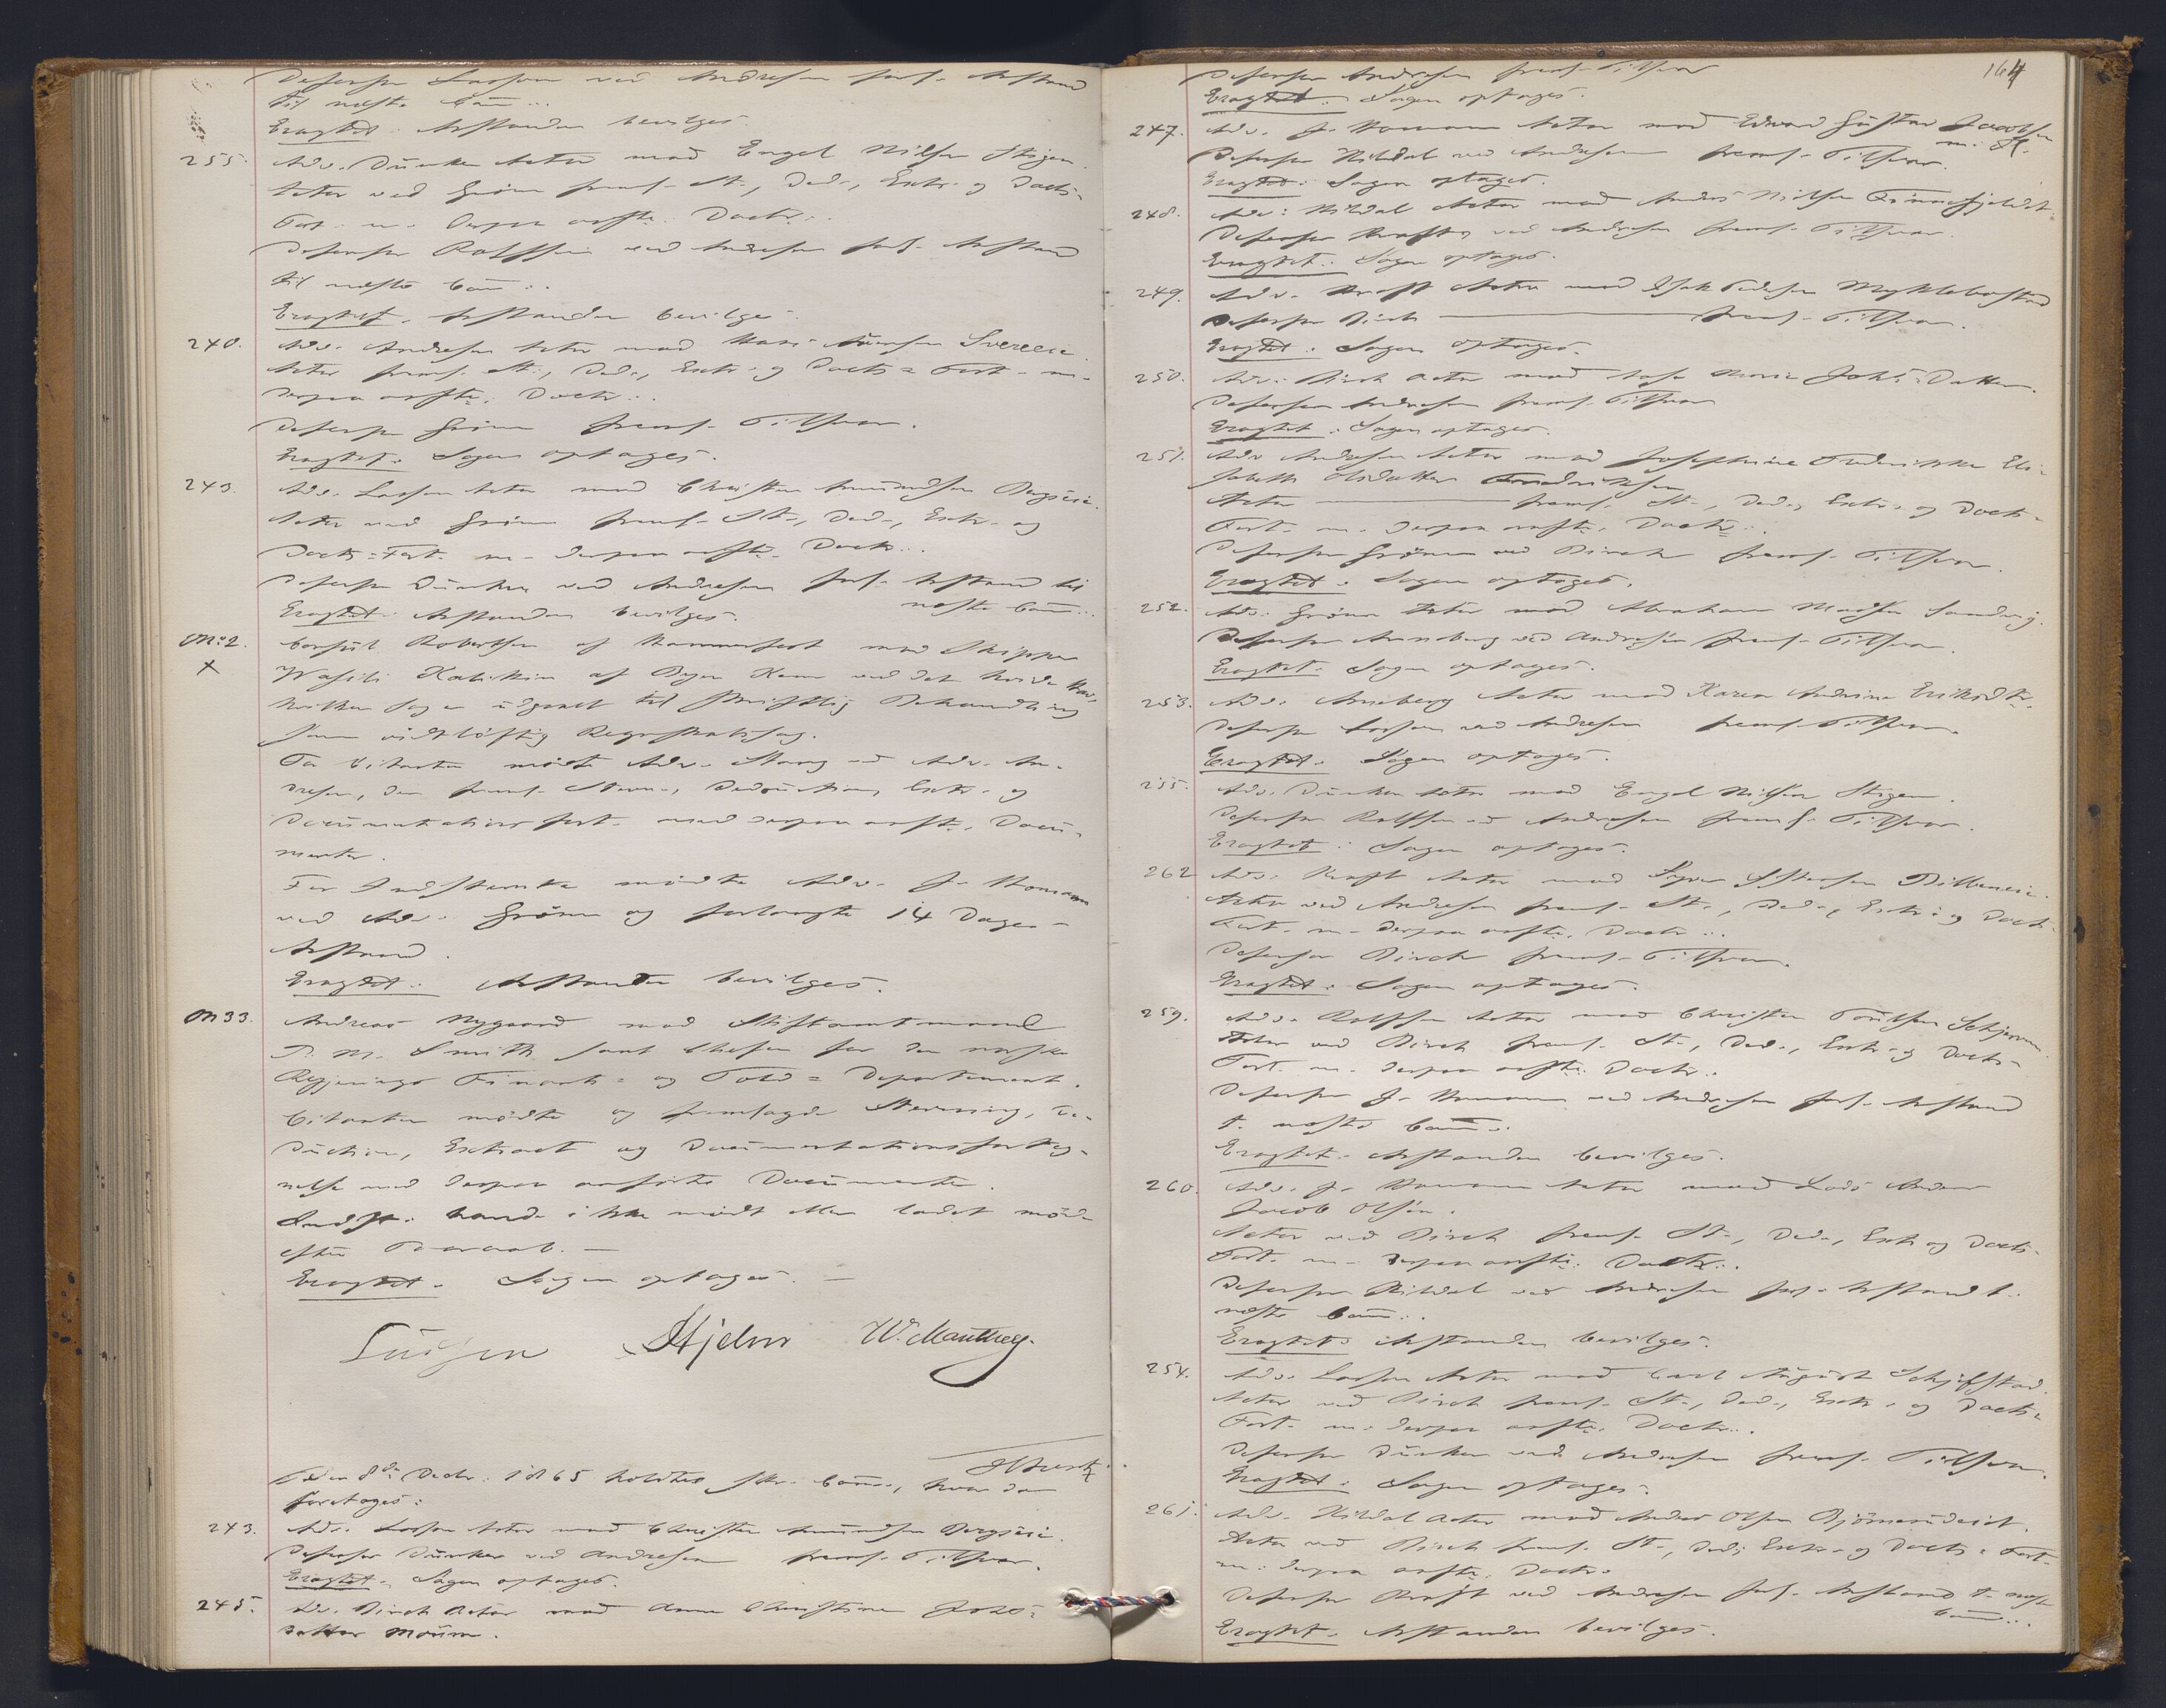 Defensor Lasson ved Andresen forl. Anstand
til næste Comm:.
Eragtet: Anstanden bevilges.
255. Adv. Dunker Actor mod Engel Nilsen Stigen.
Actor ved Grönn freml. St., Ded., Extr. og Docts-
Fort. m. derpaa anførte Doctr:.
Defensor Rolfsen ved Andresen forl. Anstand
til næste Comm:.
Eragtet. Anstanden bevilges.
240. Adv. Andresen Actor mod Hans Svereeie.
Actor freml. St., Ded., Extr. og Docts = Fort. m.
derpaa anførte Doctr:.
Defensor Grönn freml. Tilsvar.
Eragtet: Sagen optages.
243. Adv. Lasson Actor mod Christen Amundsen Bergseie.
Actor ved Grönn freml. St., Ded., Extr. og
Docts = Fort. m. derpaa anførte Doctr:.
Defensor Dunker ved Andresen forl. Anstand til
næste Comm:.
Eragtet: Anstanden bevilges.
No 2. Consul Robertson af Hammerfest mod Skipper
X Wasili af Byen Kem ved det hvide Hav,
hvilken Sag er udgaaet til skriftlig Behandling
som vidtløftig Regnskabssag.
For Citanten mödte Adv. Stang ved Adv. An-
dresen, der freml. Stevn., Deduction, Extr. og
Documentationsfort. med derpaa anfte. Docu-
menter.
For Indstevnte mödte Adv. J. Homann
ved Adv. Grönn og forlangte 14 Dages
Anstand.
Eragtet: Anstanden bevilges.
No 33. Andreas Nygaard mod Stiftamtmand
P. M. Smith samt Chefen for den norske
Regjerings Finants- og Told = Departement.
Citanten mödte og fremlagde Stevning, De-
duction, Extract og Documentationsforteg-
nelse med derpaa anførte Documenter.
Indst. havde ikke mödt eller ladet möde
efter Paaraab. —
Eragtet. Sagen optages. —
Hjelm W. Manthey.
Den 8de Decbr. 1865 holdtes skr. Comm:, hvor da
foretoges:
243. Adv. Lasson Actor mod Christen Amundsen Bergseie.
Defensor Dunker ved Andresen freml. Tilsvar.
Eragtet. Sagen optages.
245. Adv. Birch Actor mod Anne Christine
datter Moum.
164
Defensor Andresen freml. Tilsvar
Eragtet: Sagen optages.
247. Adv. J. Homann Actor mod Edvard Gustav Jacobsen
m. Fl.
Defensor Hildal ved Andresen freml. Tilsvar.
Eragtet: Sagen optages.
248. Adv: Hildal Actor mod Anders Nielsen
Defensor Kraft ved Andresen freml. Tilsvar.
Eragtet: Sagen optages.
249. Adv. Kraft Actor mod Isak Pedersen Myklebostad
Defensor Birch — freml. Tilsvar.
Eragtet: Sagen optages.
250. Adv: Birch Actor mod Marie Datter.
Defensor Andresen freml. Tilsvar
Eragtet: Sagen optages.
251. Adv Andresen Actor mod Josephine Frederikke Eli-
sabeth Olsdatter Fredriksen
Actor — freml. St., Ded., Extr. og Docts-
Fort. m. derpaa anfte. Doctr:.
Defensor Grönn ved Birch freml. Tilsvar.
Eragtet: Sagen optages.
252. Adv. Grönn Actor mod Abraham Madsen Sandvig.
Defensor Anneberg ved Andresen freml. Tilsvar.
Eragtet. Sagen optages.
253. Adv. Anneberg Actor mod Karen Andrine Eriksdtr.
Defensor Lasson ved Andresen freml. Tilsvar.
Eragtet: Sagen optages.
255. Adv. Dunker Actor mod Engel Nilsen Stigen.
Defensor Rolfsen ved Andresen freml. Tilsvar.
Eragtet: Sagen optages.
262 Adv. Kraft Actor mod
Actor ved Andresen freml. St., Ded., Extr. og Docts-
Fort. m. derpaa anfte. Doctr:.
Defensor Birch freml. Tilsvar.
Eragtet: Sagen optages.
259. Adv. Rolfsen Actor mod Christen
Actor ved Birch freml. St., Ded., Extr. og Docts-
Fort. m. derpaa anfte. Doctr:.
Defensor J. Homann ved Andresen forl. Anstand
t. næste Comm:.
Eragtet. Anstanden bevilges.
260. Adv. J. Homann Actor mod Lods
Jacob Olsen.
Actor ved Birch freml. St., Ded., Extr. og Docts-
Fort. m. derpaa anfte. Doctr:.
Defensor Hildal ved Andresen forl. Anstand t.
næste Comm:.
Eragtet: Anstanden bevilges.
254. Adv. Lasson Actor mod Carl August Schifstad.
Actor ved Birch freml. St., Ded., Extr. og Docts-
Fort. m. derpaa anfte. Doctr:.
Defensor Dunker ved Andresen freml. Tilsvar.
Eragtet: Sagen optages.
261. Adv. Hildal Actor mod Anders Olsen Björnerudeiet.
Actor ved Birch freml. St., Ded., Extr. og Docts = Fort.
m. derpaa anfte. Doctr.
Defensor Kraft ved Andresen forl. Anstand t. næste
Comm:.
Eragtet. Anstanden bevilges.